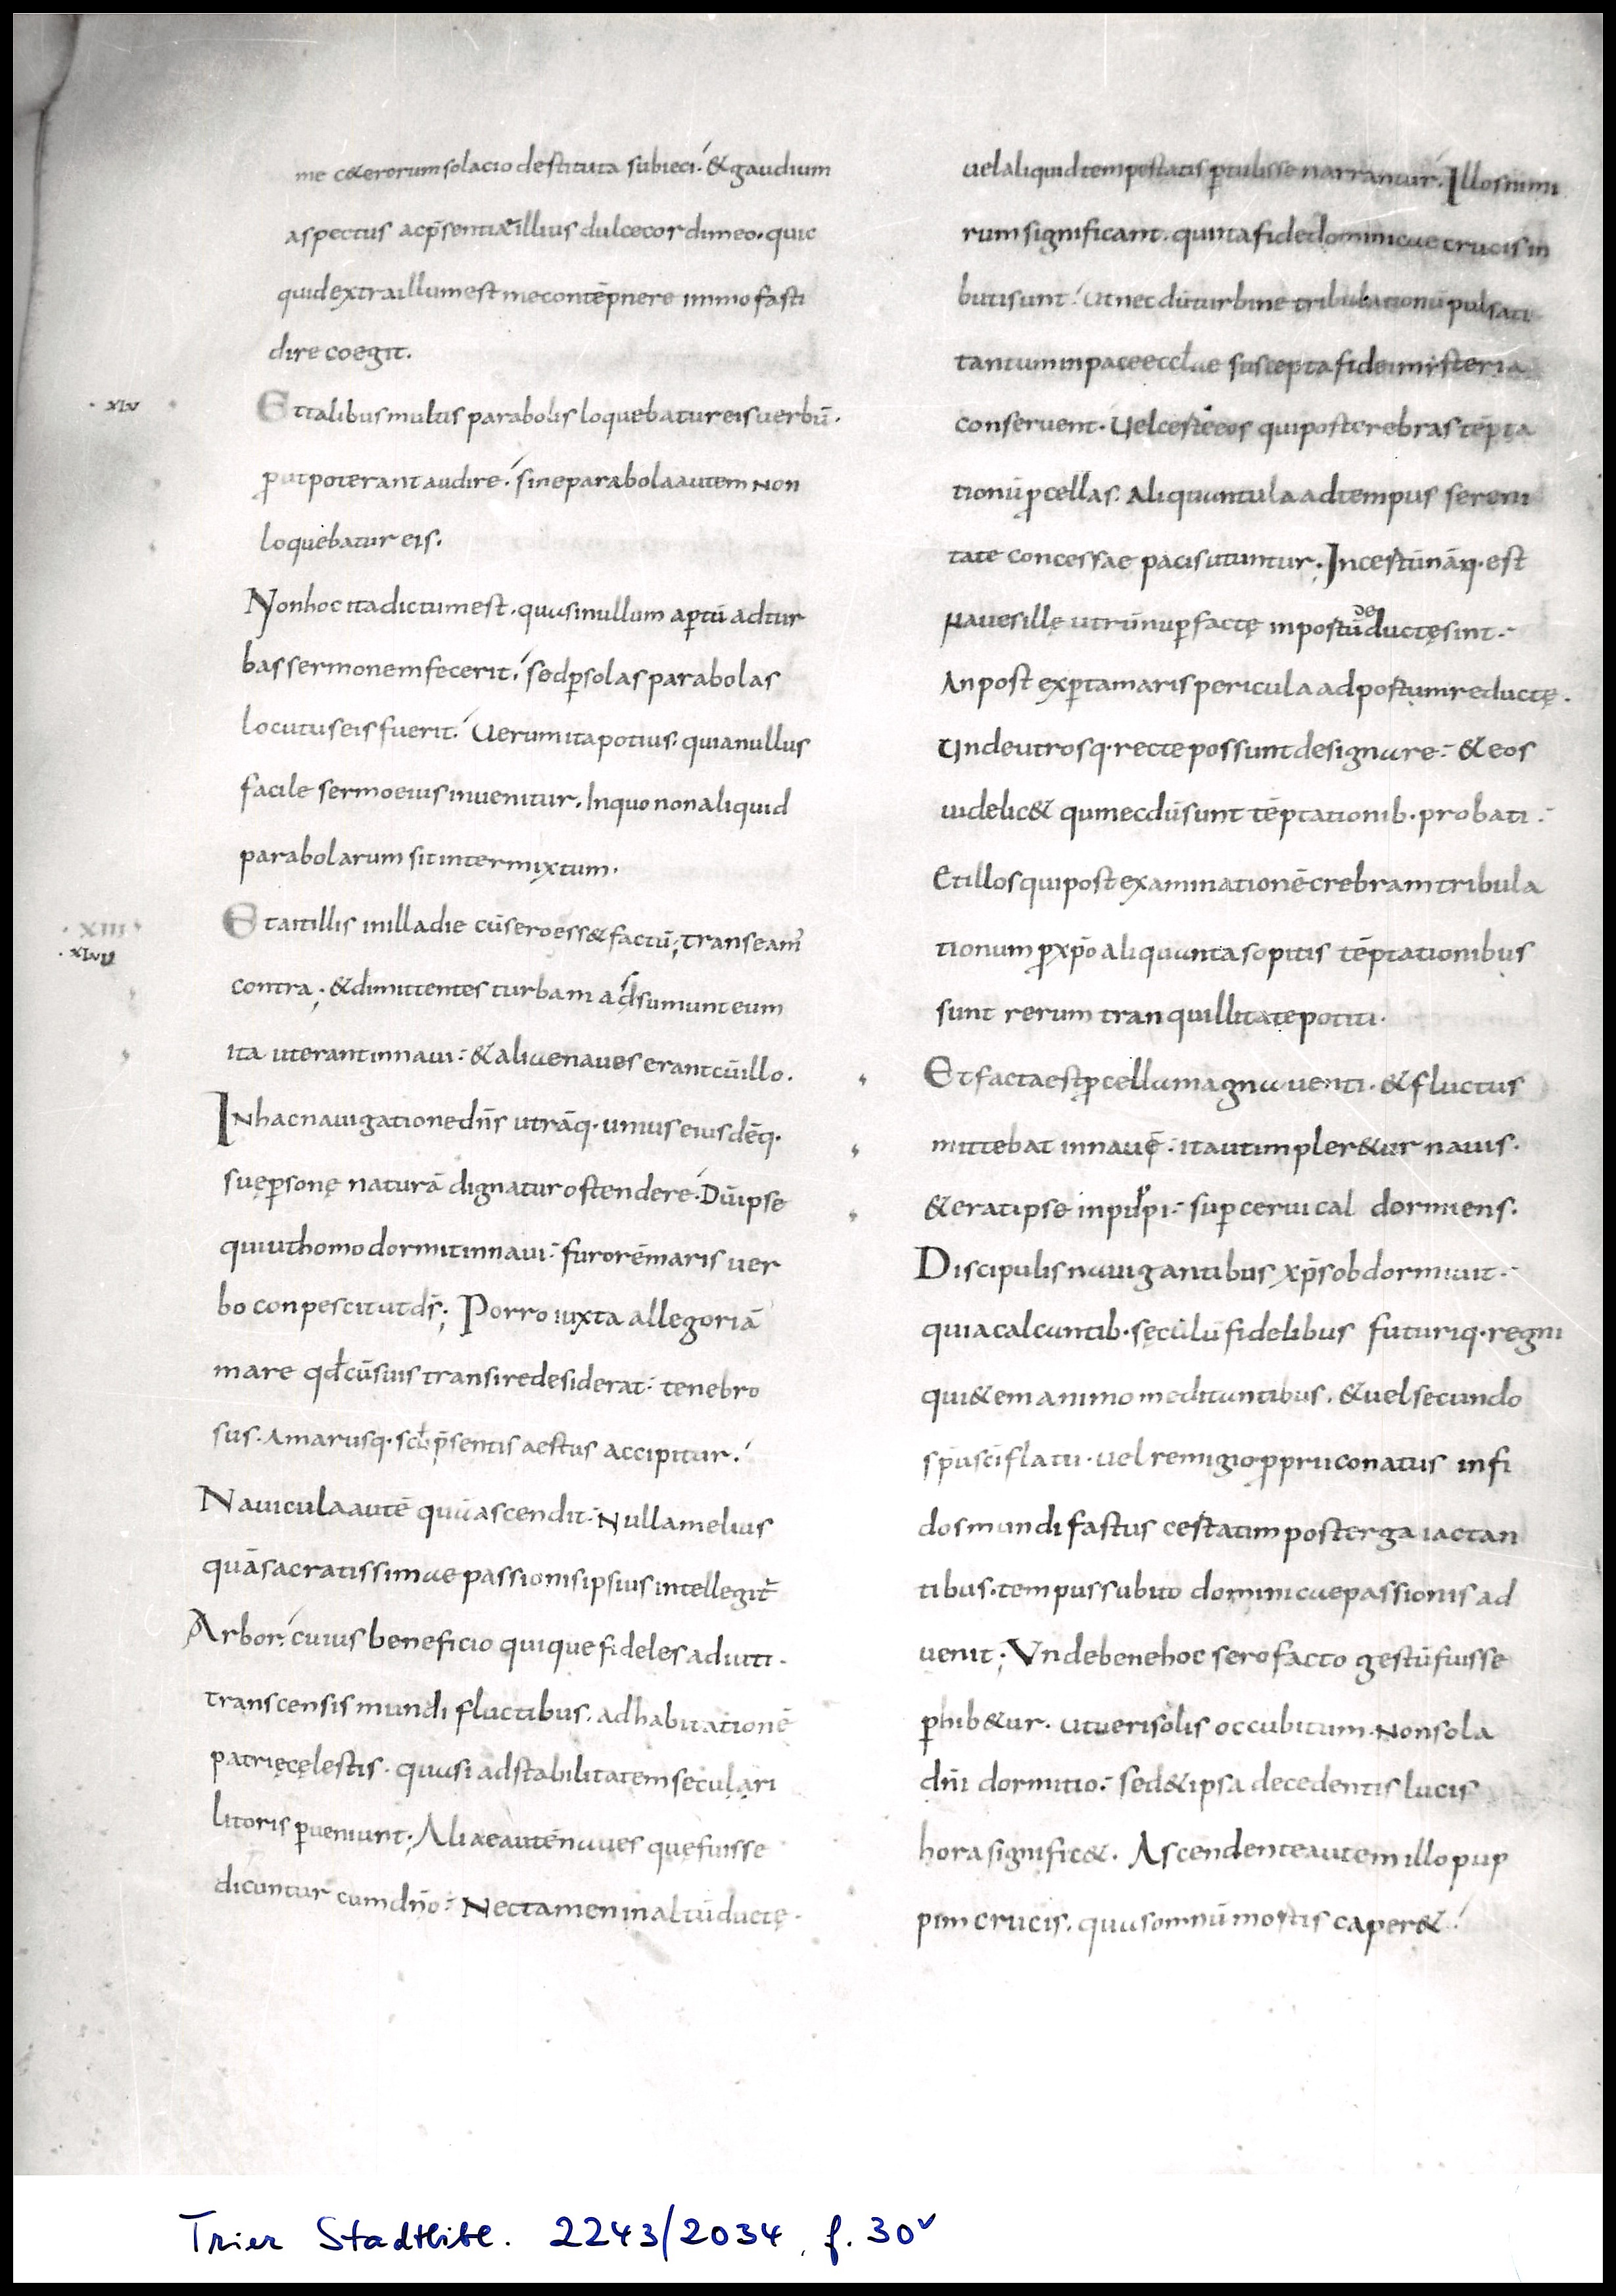 me c&ererum solacio destituta subieci. & gaudium
aspectus ac p̄sentiae illius dulce cordi meo. quic
quid extra illum est me contēpnere immo fasti
dire coegit.
· xlv
Et talibus multis parabolis loquebatur eis uerbū.
ꝓut poterant audire. sine parabola autem non
loquebatur eis.
Non hoc ita dictum est. quasi nullum aꝑtū ad tur
bas sermonem fecerit. sed ꝑ solas parabolas
locutus eis fuerit. Uerum ita potius. quia nullus
facile sermo eius inuenitur. In quo non aliquid
parabolarum sit intermixtum.
· XIII ·
· xlvii
Et ait illis in illa die cū sero ess& factū; transeam̄
contra; & dimittentes turbam adsumunt eum
ita ut erant in naui: & aliae naues erant cū illo.
In hac nauigatione dn̄s utrāq· unius eiusdēq·
suę ꝑsonę naturā dignatur ostendere. Dū ipse
qui ut homo dormit in naui: furorē maris uer
bo conpescit ut ds̄; Porro iuxta allegoriā
mare qđ cū suis transire desiderat: tenebro
sus. Amarusq· scłi p̄sentis aestus accipitur.
Nauicula autē quā ascendit. Nulla melius
quā sacratissimae passionis ipsius intellegit̄
Arbor. cuius beneficio quique fideles adiuti.
transcensis mundi fluctibus. ad habitationē
patrię cęlestis. quasi ad stabilitatem secularį
litoris ꝑueniunt; Aliae autē naues quę fuisse
dicuntur cum dn̄o: Nec tamen in altū ductę.
uel aliquid tempestatis ꝑtulisse narrantur. Illos nimi
rum significant. qui ita fide dominicae crucis in
buti sunt. Ut necdū turbine tribulationū pulsati
tantum in pace eccłae suscepta fidei misteria
conseruent. Uel certe eos qui post crebras tēpta
tionū ꝓcellas. Aliquantula ad tempus sereni
tate concessae pacis utuntur. Incertū nāq· est
naues illę utrū nuꝑ factę in portū deductę sint.
An post exꝑta maris pericula ad portum reductę.
Unde utrosq· recte possunt designare: & eos
uidelic& qui necdū sunt tēptationib· probati:
Et illos qui post examinationē crebram tribula
tionum ꝓ xp̄o aliquanta sopitis tēptationibus
sunt rerum tranquillitate potiti.
Et facta est ꝓcella magna uenti. & fluctus
mittebat in nauē: ita ut impler&ur nauis.
& erat ipse in puppi: suꝑ ceruical dormiens.
Discipulis nauigantibus xp̄s obdormiuit.
quia calcantib· sęculū fidelibus futuriq· regni
qui&em animo meditantibus. & uel secundo
sp̄us sc̄i flatu. uel remigio ꝓprii conatus infi
dos mundi fastus certatim post terga iactan
tibus. tempus subito dominicae passionis ad
uenit; Unde bene hoc sero facto gestū fuisse
ꝑhib&ur. ut ueri solis occubitum. Non sola
dn̄i dormitio: sed & ipsa decedentis lucis
hora signific&. Ascendente autem illo pup
pim crucis. qua somnū mortis caper&.
Trier Stadtbibl. 2243/2034, f. 30v